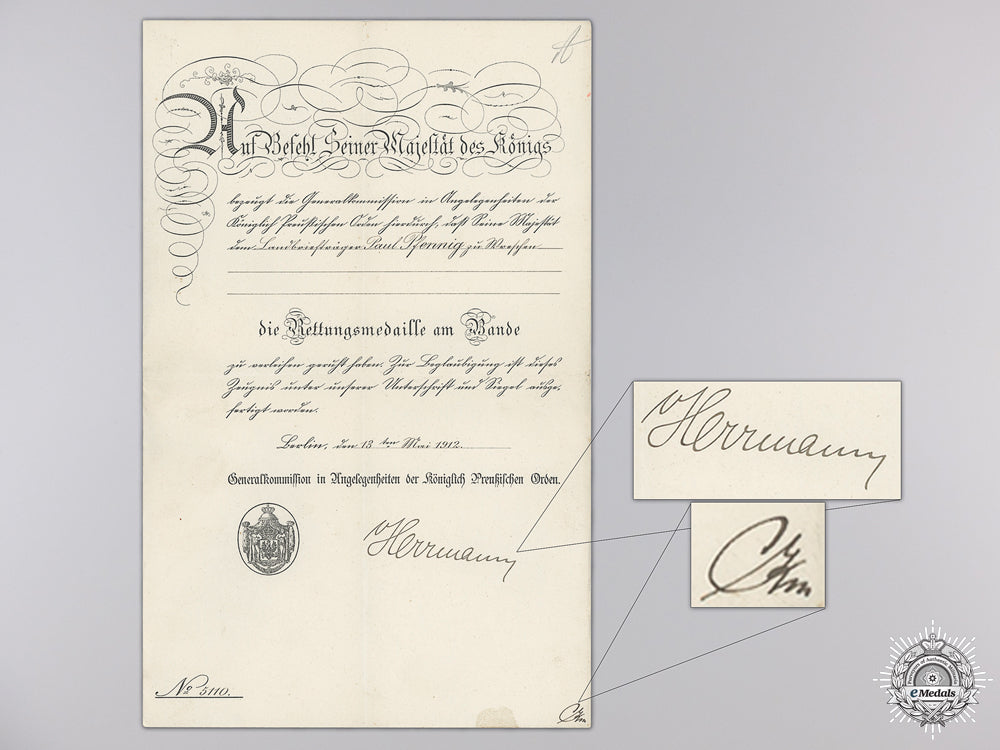 Auf Befehl Seiner Majestät des Königs
bezeugt die Generalkommission in Angelegenheiten der
Königlich Preußischen Orden hierdurch, daß Seine Majestät
dem Landbriefträger Paul Pfennig zu
die Rettungsmedaille am Bande
zu verleihen geruht haben. Zur Beglaubigung ist dieses
Zeugnis unter unserer Unterschrift und Siegel ausge-
fertigt worden.
Berlin, den 13ten Mai 1912.
Generalkommission in Angelegenheiten der Königlich Preußischen Orden.
Herrmann
Herrmann
No 5110.
eMedals